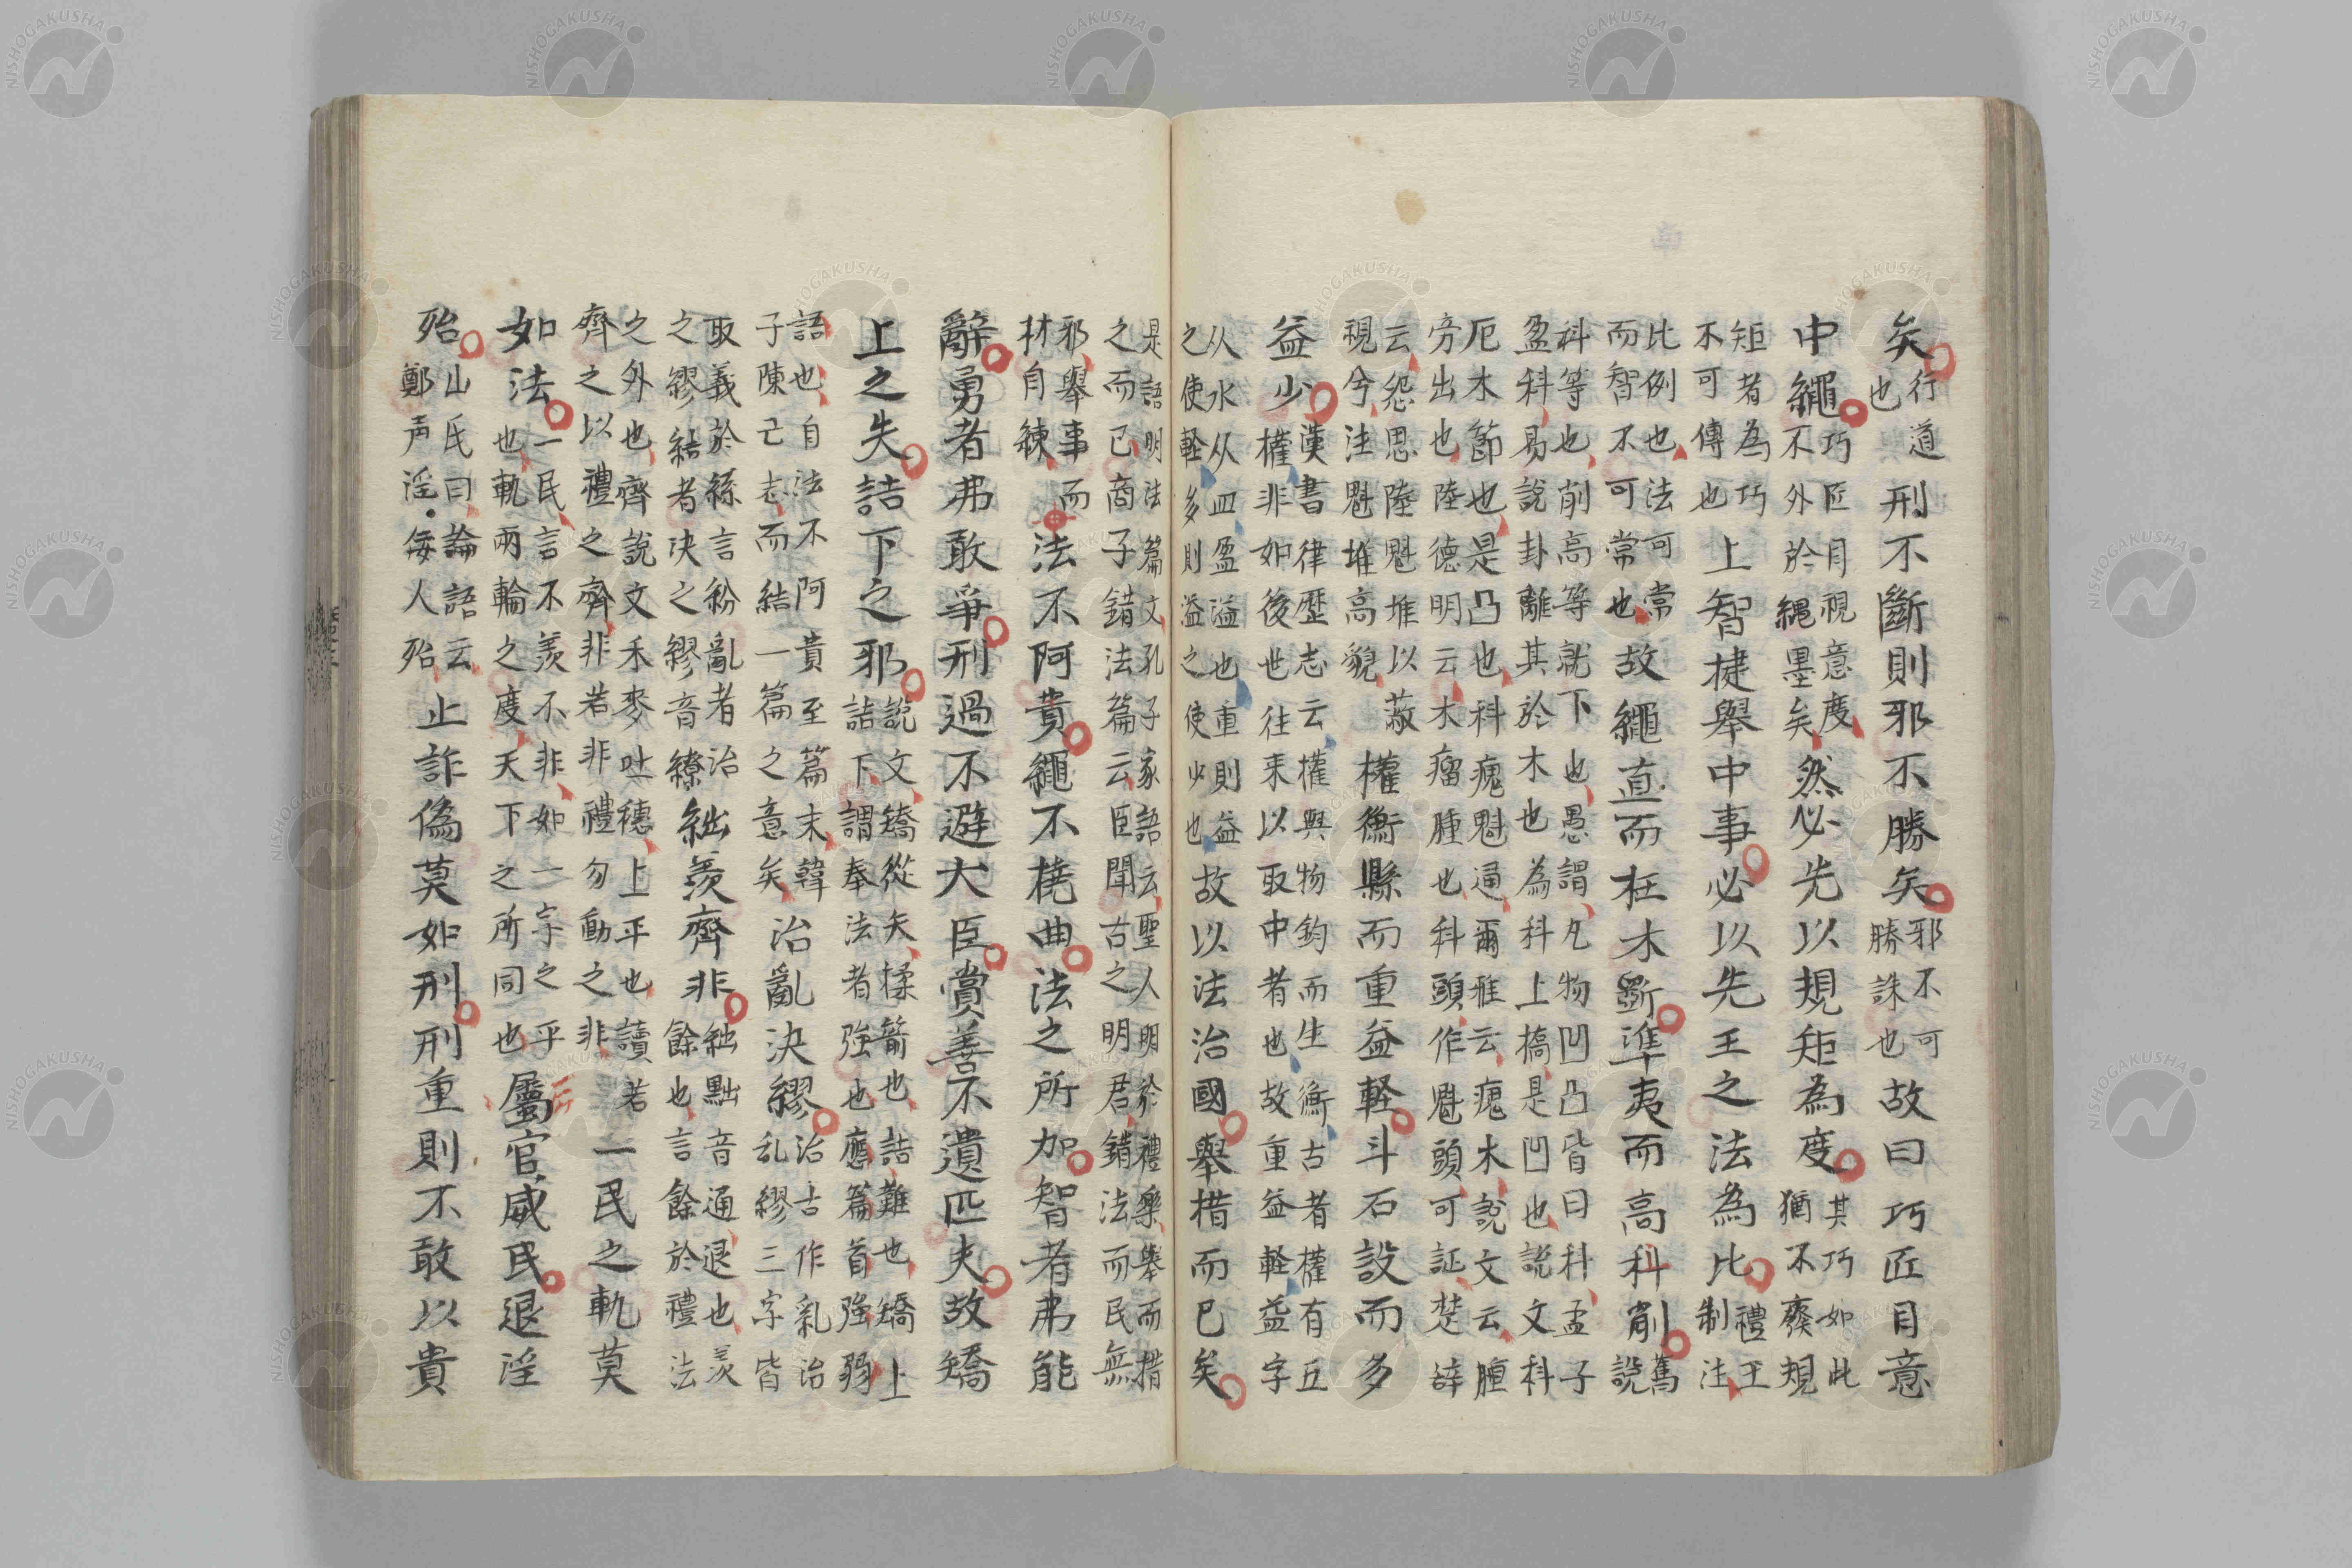 矣行道也刑不斷則邪不勝矣邪不可勝誅也故曰巧匠目意
中繩巧匠目視意度不外於縄墨矣然必先以規矩為度其巧如此猶不廢規
矩者為巧不可傳也上智捷舉中事必以先王之法為比禮王制注
比例也法可常而智不可常也故繩直而枉木斵準夷而高科削舊說
科等也削高等就下也愚謂凡物凹凸皆曰科孟子盈科易說卦離其於木也為科上槁是凹也說文科
厄木節也是凸也科瘣魁通爾雅云瘣木說文云腫旁出也陸德明云木瘤腫也科頭作魁頭可証楚辞
云怨思陸魁堆以蔽視兮注魁堆高貌權衡縣而重益軽斗石設而多
益少漢書律歴志云權與物鈞而生衡古者權有五權非如後世往来以取中者也故重益軽益字
从水从皿盈溢也重則益之使軽多則溢之使少也故以法治國舉措而已矣
是語明法篇文孔子家語云聖人明於禮樂舉而措之而已商子錯法篇云臣聞古之明君錯法而民無
邪舉事而材自練法不阿貴繩不撓曲法之所加智者弗能
辭勇者弗敢爭刑過不避大臣賞善不遺匹夫故矯
上之失詰下之邪說文矯從矢揉箭也詰難也矯上詰下謂奉法者強也應篇首強弱
語也自法不阿貴至篇末韓子陳己志而結一篇之意矣治亂決繆治古作乿治乱繆三字皆
取義於絲言紛亂者治之繆結者决之繆音繚絀羨齊非絀黜音通退也羡餘也言餘於禮法
之外也齊說文禾麥吐穗上平也讀若齊之以禮之齊非若非禮勿動之非一民之軌莫
如法一民言不羨不非如一宇之乎也軌兩輪之度天下之所同也屬官威民退淫
殆山氏曰論語云鄭声淫佞人殆止詐偽莫如刑刑重則不敢以貴